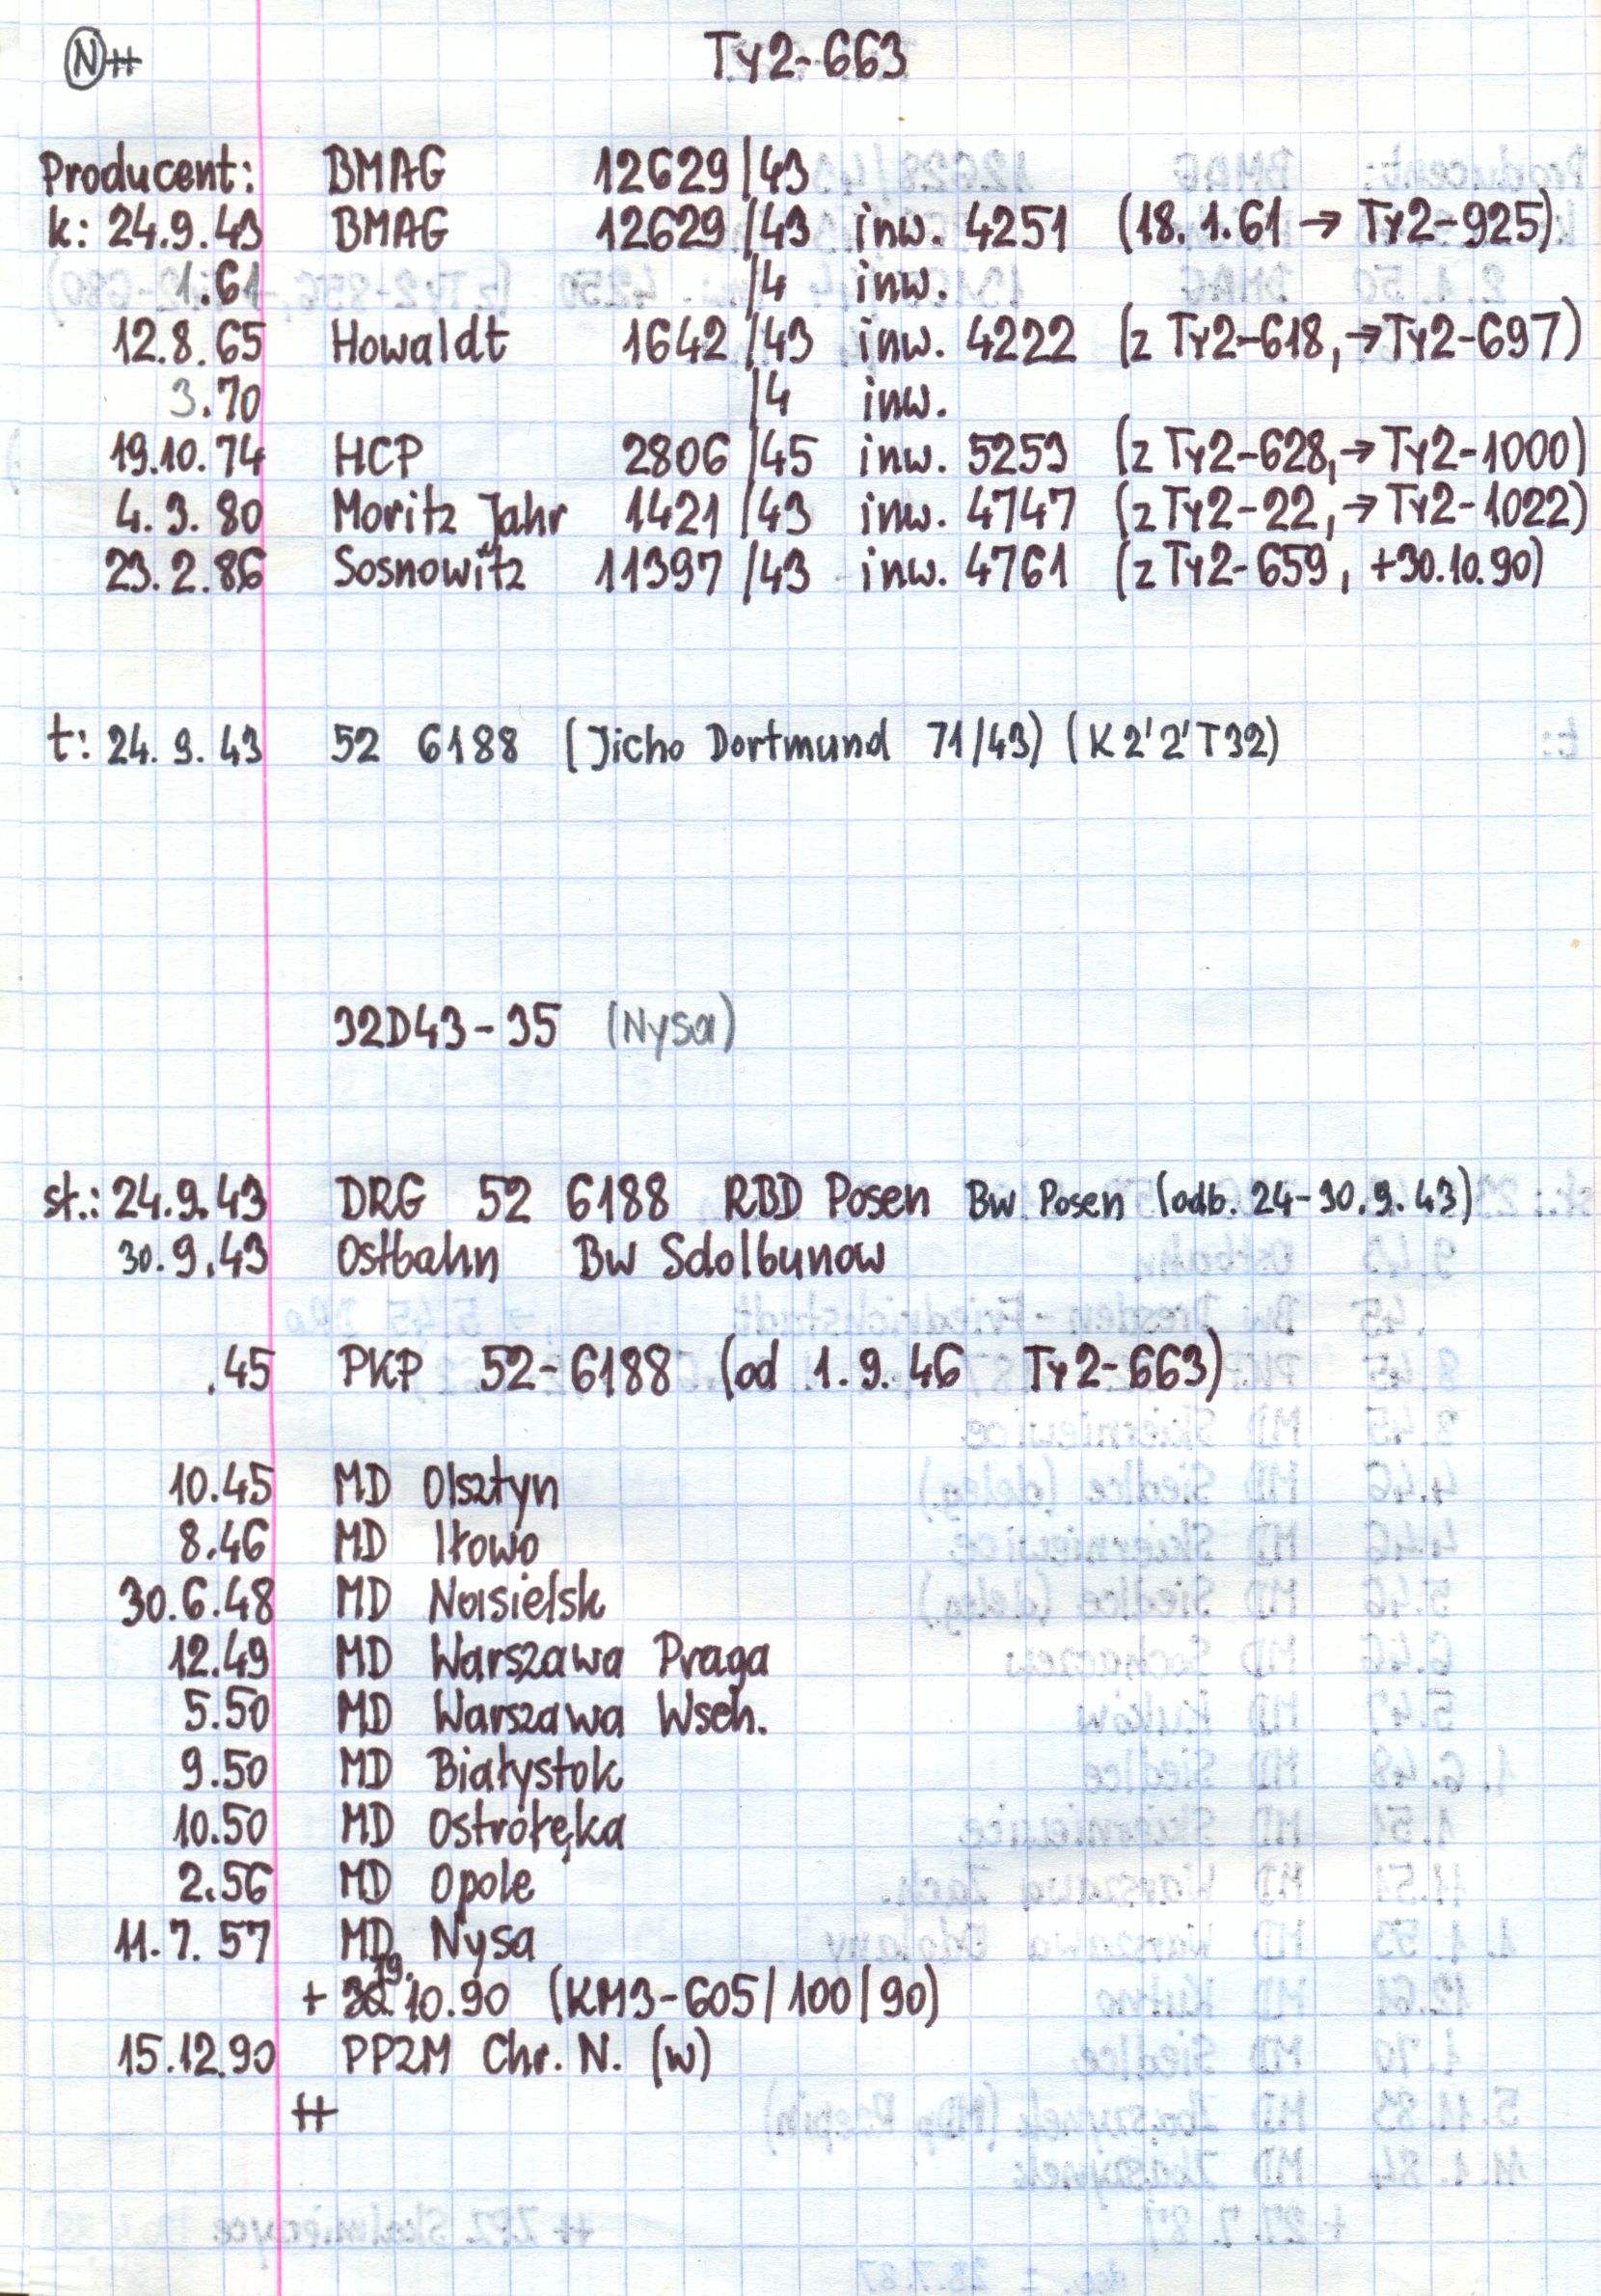 N ++
Ty2-663
Producent: BMAG 12629/43
k: 24.9.43 BMAG 12629/43 inw. 4251 (18.1.61 → Ty2-925)
1.61 /4 inw.
12.8.65 Howaldt 1642/43 inw. 4222 (z Ty2-618, → Ty2-697)
3.70 /4 inw.
19.10.74 HCP 2806/45 inw. 5253 (z Ty2-628, → Ty2-1000)
4.3.80 Moritz Jahr 1421/43 inw. 4747 (z Ty2-22, → Ty2-1022)
23.2.86 Sosnowitz 11397/43 inw. 4761 (z Ty2-659, +30.10.90)
t: 24.9.43 52 6188 (Jicho Dortmund 71/43) (K2'2'T32)
32D43-35 (Nysa)
st.: 24.9.43 DRG 52 6188 RBD Posen Bw Posen (odb. 24-30.9.43)
30.9.43 Ostbahn Bw Sdolbunow
.45 PKP 52-6188 (od 1.9.46 Ty2-663)
10.45 MD Olsztyn
8.46 MD Iłowo
30.6.48 MD Nasielsk
12.49 MD Warszawa Praga
5.50 MD Warszawa Wsch.
9.50 MD Białystok
10.50 MD Ostrołęka
2.56 MD Opole
11.7.57 MD Nysa
+ 19.10.90 (KM3-605/100/90)
15.12.90 PPZM Chr. N. (w)
++